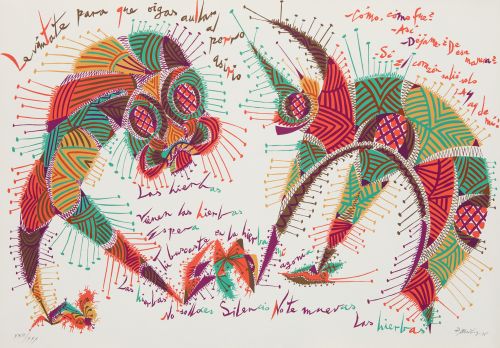 Levántate para que oigas aullar
al perro
asirio
-Cómo, cómo fue?
-Así
-Déjame? De esa manera?
-Sí
El corazón salió solo
Ay de mí
Las hierbas
Vienen las hierbas
Espera
en la hierba
agoniza
Las hierbas
No solloces Silencio No te mueras
Las hierbas
XXII/XXX